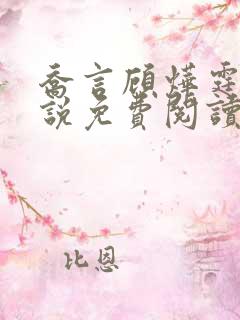 喬言顧燁霆
說免費閱讀
比恩